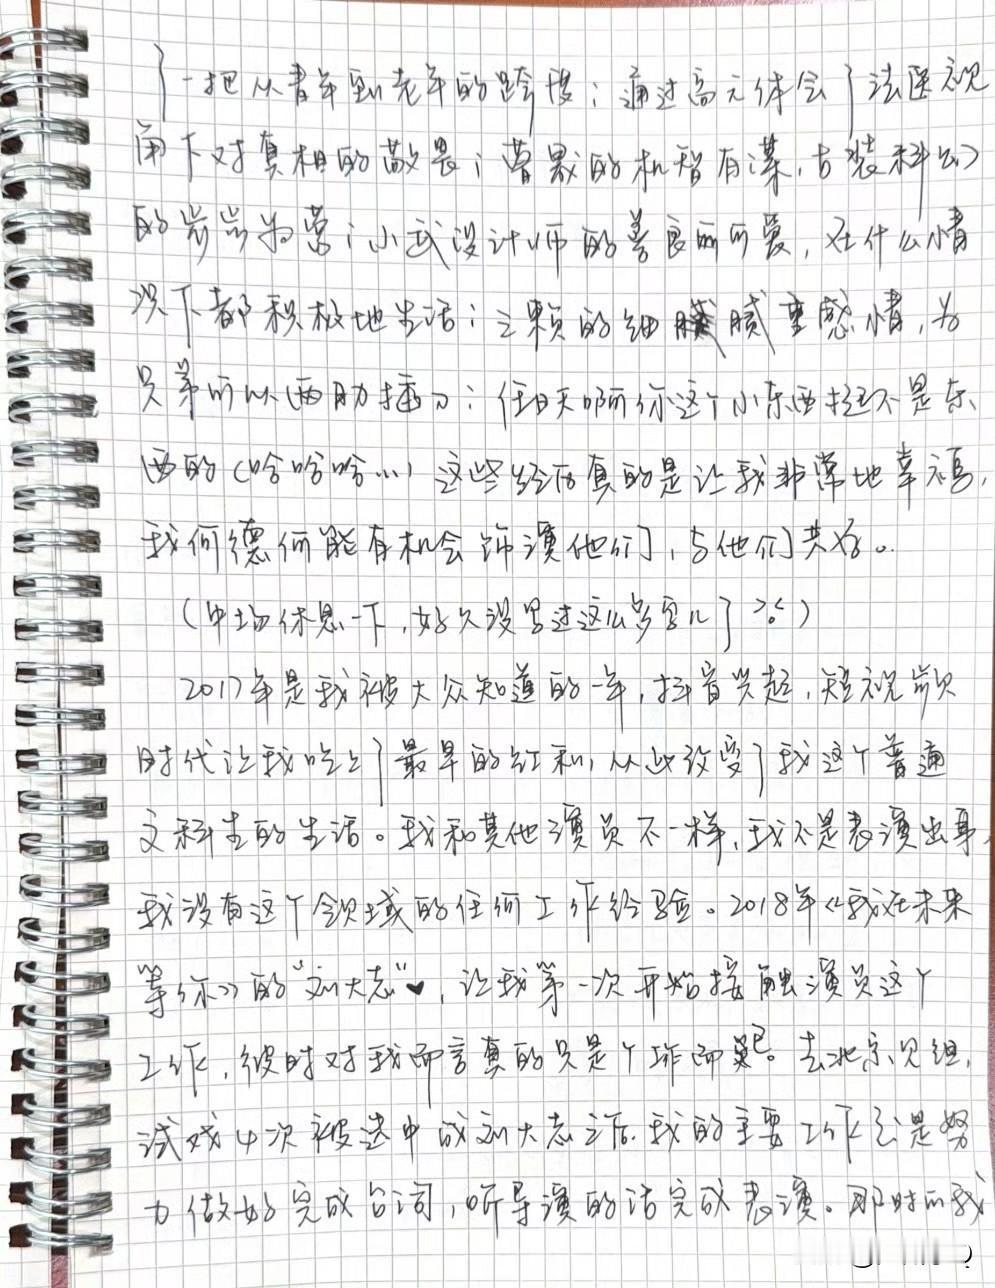 了一把从青年到老年的跨度；通过高元体会了法医视
角下对真相的敬畏；曹戬的机智有谋，古装科幻
的步步为营；小武设计师的善良而可爱，在什么情
况下都积极地生活；之颖的细腻重感情，为
兄弟可以两肋插刀；任昊天啊你这个小东西挺不是东
西的（哈哈哈…）这些经历真的是让我非常地幸福，
我何德何能有机会饰演他们，与他们共好。
（中场休息一下，好久没写过这么多字儿了）
2017年是我被大众知道的一年，抖音兴起，短视频
时代让我吃上了最早的红利，从此改变了我这个普通
文科生的生活。我和其他演员不一样，我不是表演出身，
我没有这个领域的任何工作经验。2018年《我在未来
等你》的“刘大志”♥，让我第一次开始接触演员这个
工作，彼时对我而言真的只是个工作而已。去北京见组，
试戏4次被选中成刘大志之后，我的主要工作就是努
力做好完成台词，听导演的话完成表演。那时的我